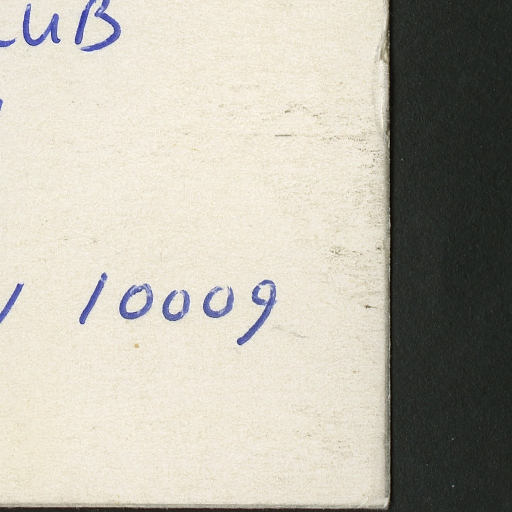 LUB
10009